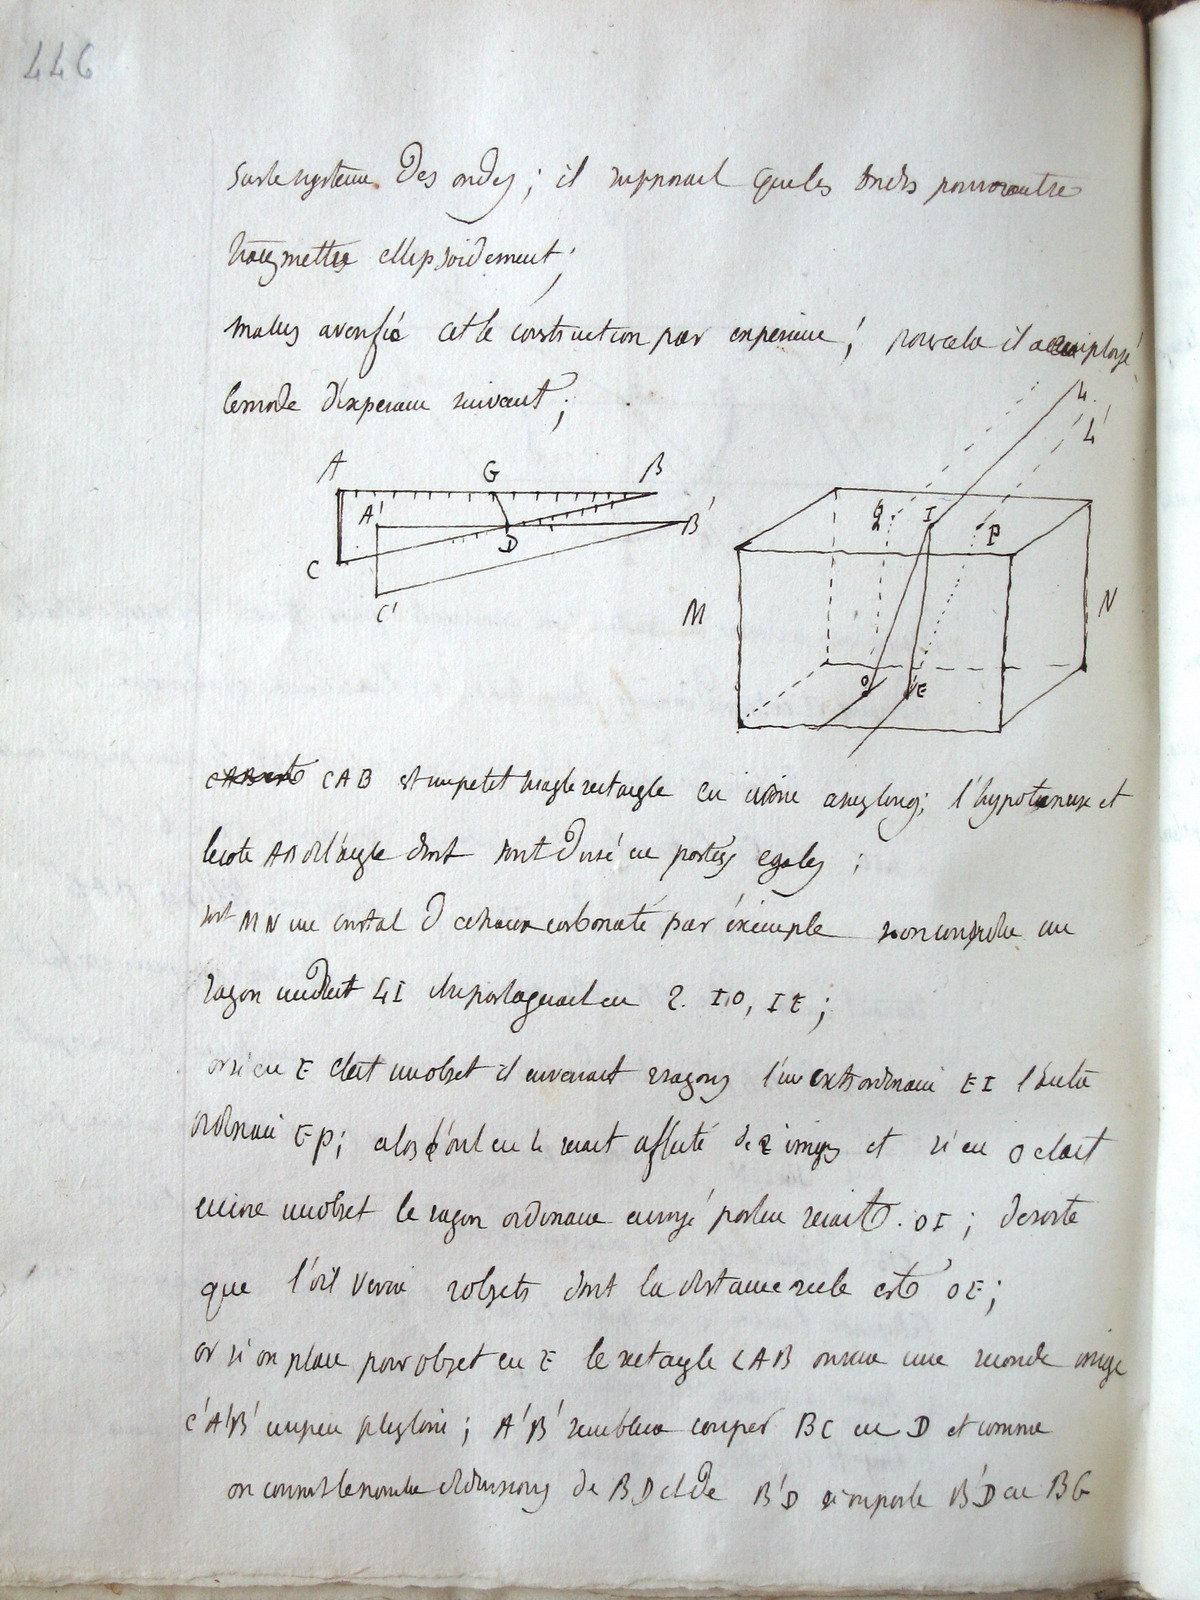 446
sur le systeme des ondes ; il supposait que les ondes pouvoient se
transmettre ellipsoidement ;
malus a verifié cette construction par experience ; pour cela il a employé
le mode d'experience suivant ;
A G B
A' D B'
C
C'
L
L'
Q I P
M N
O E
CAB est un petit triagle rectagle en ivoire assez long ; l'hypotenuse et
le coté AB de l'agle droit sont divisé en parties egales ;
soit MN un cristal de chaux carbonaté par exemple si on conçoit un
rayon incident LI il se partagerait en 2. IO, IE ;
or si en E etait un objet il enverrait 2 rayons l'un extraordinaire EI l'autre
ordinaire EP ; alors l'oeil en L serait affecté de 2 images et si en O etait
encore un objet le rayon ordinaire envoyé par lui serait OI ; de sorte
que l'oeil verrai 2 objets dont la distance reele est OE ;
or si on place pour objet en E le rectagle CAB on aura une seconde image
C'A'B' un peu plus loin ; A'B' semblera couper BC en D et comme
on connait le nombre de divisions de BD et de B'D si on porte B'D en BG